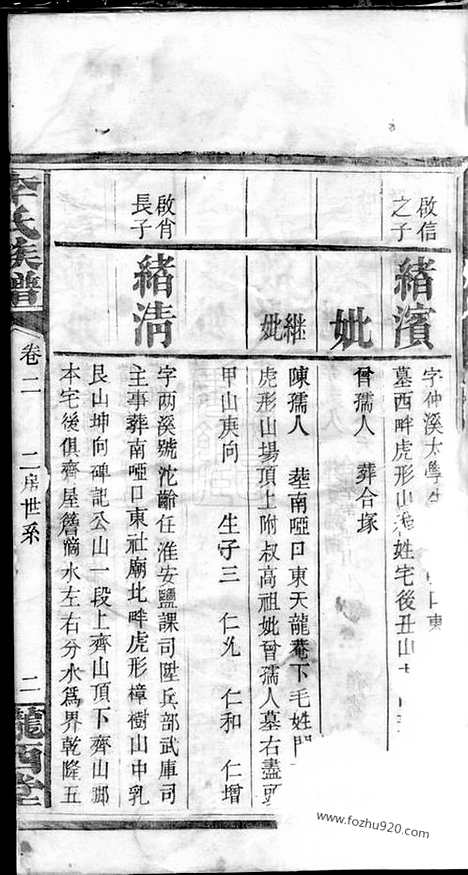 啟信之子
緒濱
字仲溪太學生
墓西畔虎形山
姓宅後丑山
妣
曾孺人 葬合塚
繼妣
陳孺人 塟南啞口東天龍菴下毛姓門
虎形山場頂上附叔高祖妣曾孺人墓右盡頭
甲山庚向 生子三 仁允 仁和 仁增
啟肖長子
緒清
字两溪號沈齡任淮安鹽課司陞兵部武庫司
主事葬南啞口東社廟北畔虎形樟樹山中乳
艮山坤向碑記公山一段上齊山頂下齊山鄉
本宅後俱齊屋簷滴水左右分水為界乾隆五
李氏族譜
卷二
二房世系
二
隴西堂
www.fozhu920.com